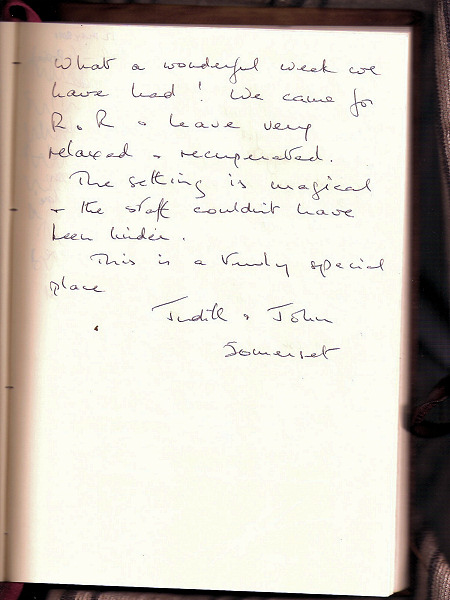 What a wonderful week we
have had! We came for
R. R & leave very
relaxed & recuperated.
The setting is magical
& the staff couldn't have
been kinder.
This is a truly special
place
Judith & John
Somerset